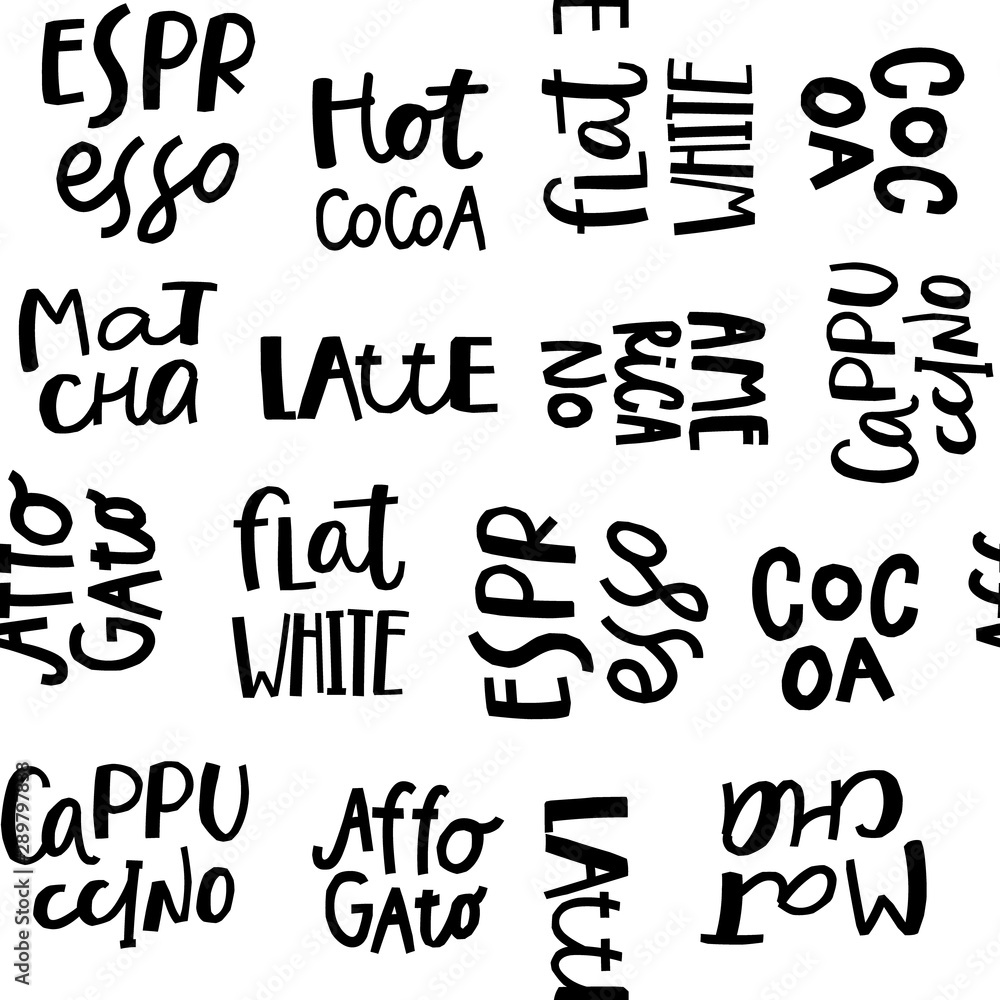 ESPR
esso
Hot
COCOA
fLat
WHITE
E
COC
OA
Mat
CHa
LAttE
AME
RiCA
No
CaPPU
CCINO
Affo
GAto
fLat
WHITE
ESPR
esso
COC
OA
Aff
CaPPU
CCINO
Affo
GAto
LAtt
Mat
CHa
Adobe Stock | #289797838